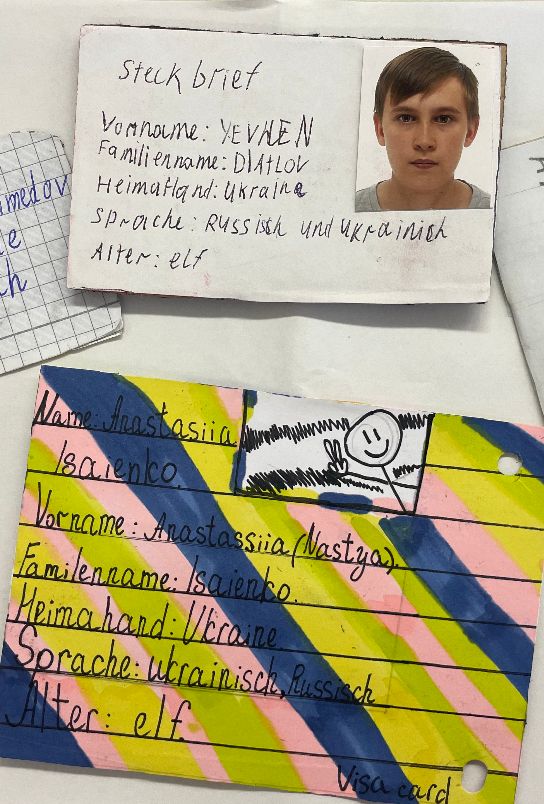 Steckbrief
Vorname: YEVHEN
Familienname: DIATLOV
Heimatland: Ukraine
Sprache: Russisch und Ukrainich
Alter: elf
medov
e
h
Name: Anastasiia
Isaienko.
Vorname: Anastassiia (Nastya).
Familenname: Isaienko.
Heimahand: Ukraine
Sprache: Ukrainisch, Russisch
Alter: elf
Visa card